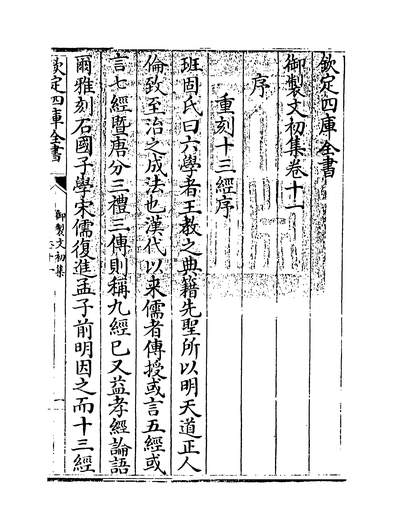 欽定四庫全書
御製文初集卷十一
序
重刻十三經序
班固氏曰六學者王教之典籍先聖所以明天道正人
倫致至治之成法也漢代以来儒者傳授或言五經或
言七經暨唐分三禮三傳則稱九經已又益孝經論語
爾雅刻石國子學宋儒復進孟子前明因之而十三經
欽定四庫全書
御製文初集
卷十一
一